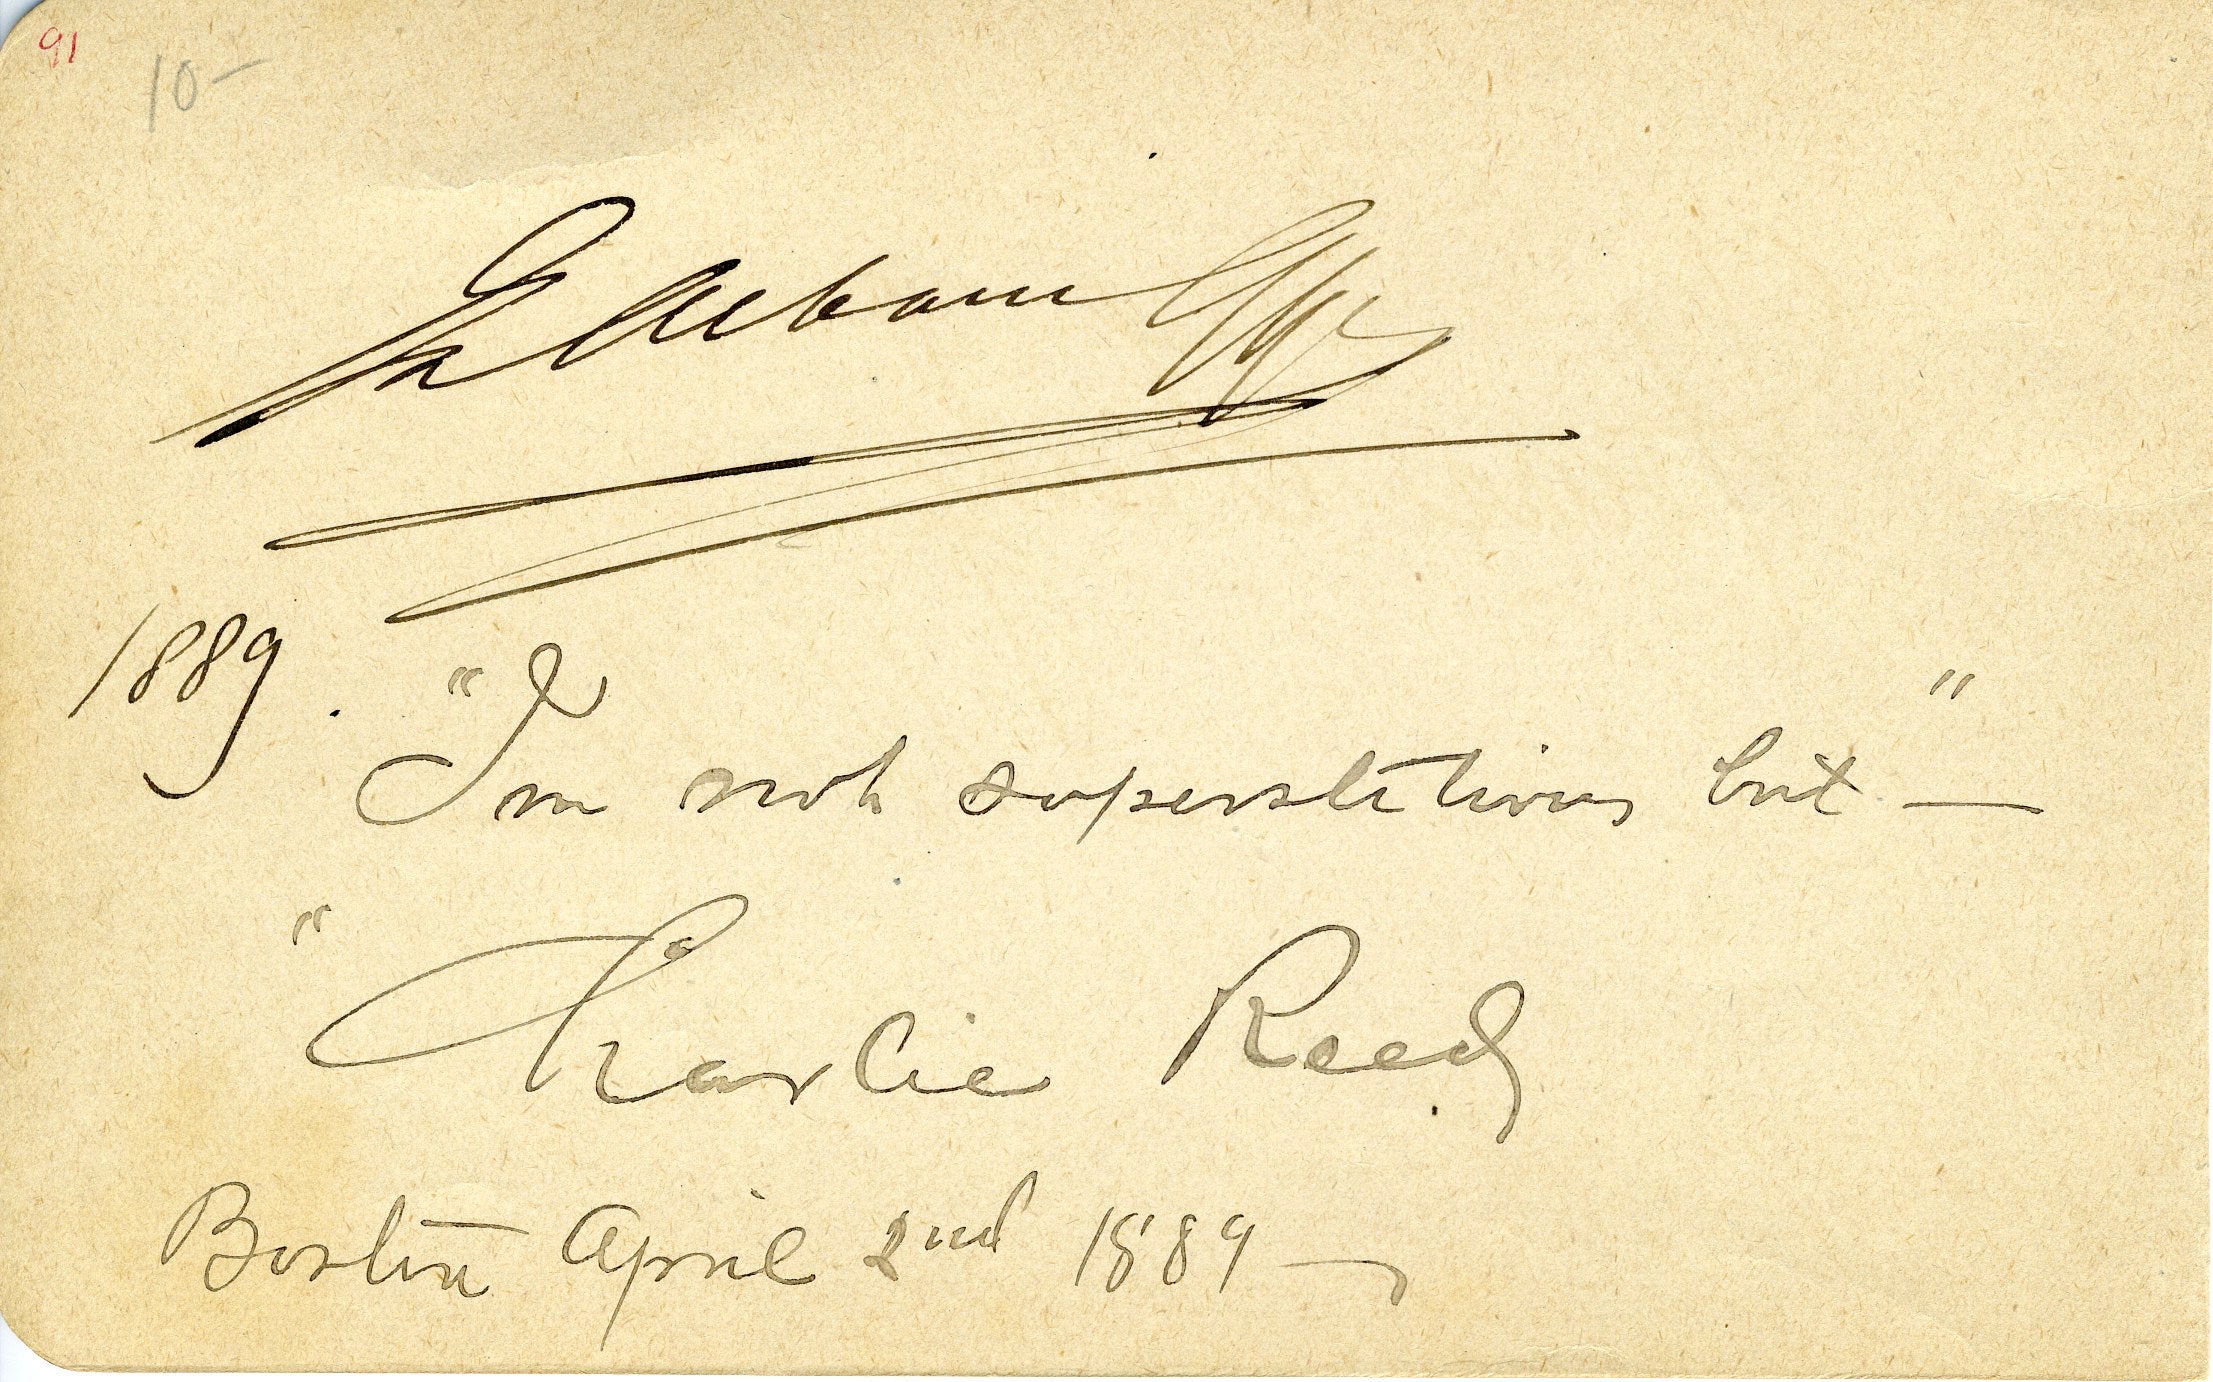 91
10-
1889.
"I'm not superstitious but" —
"Charlie Reed
Boston April 2nd 1889 —